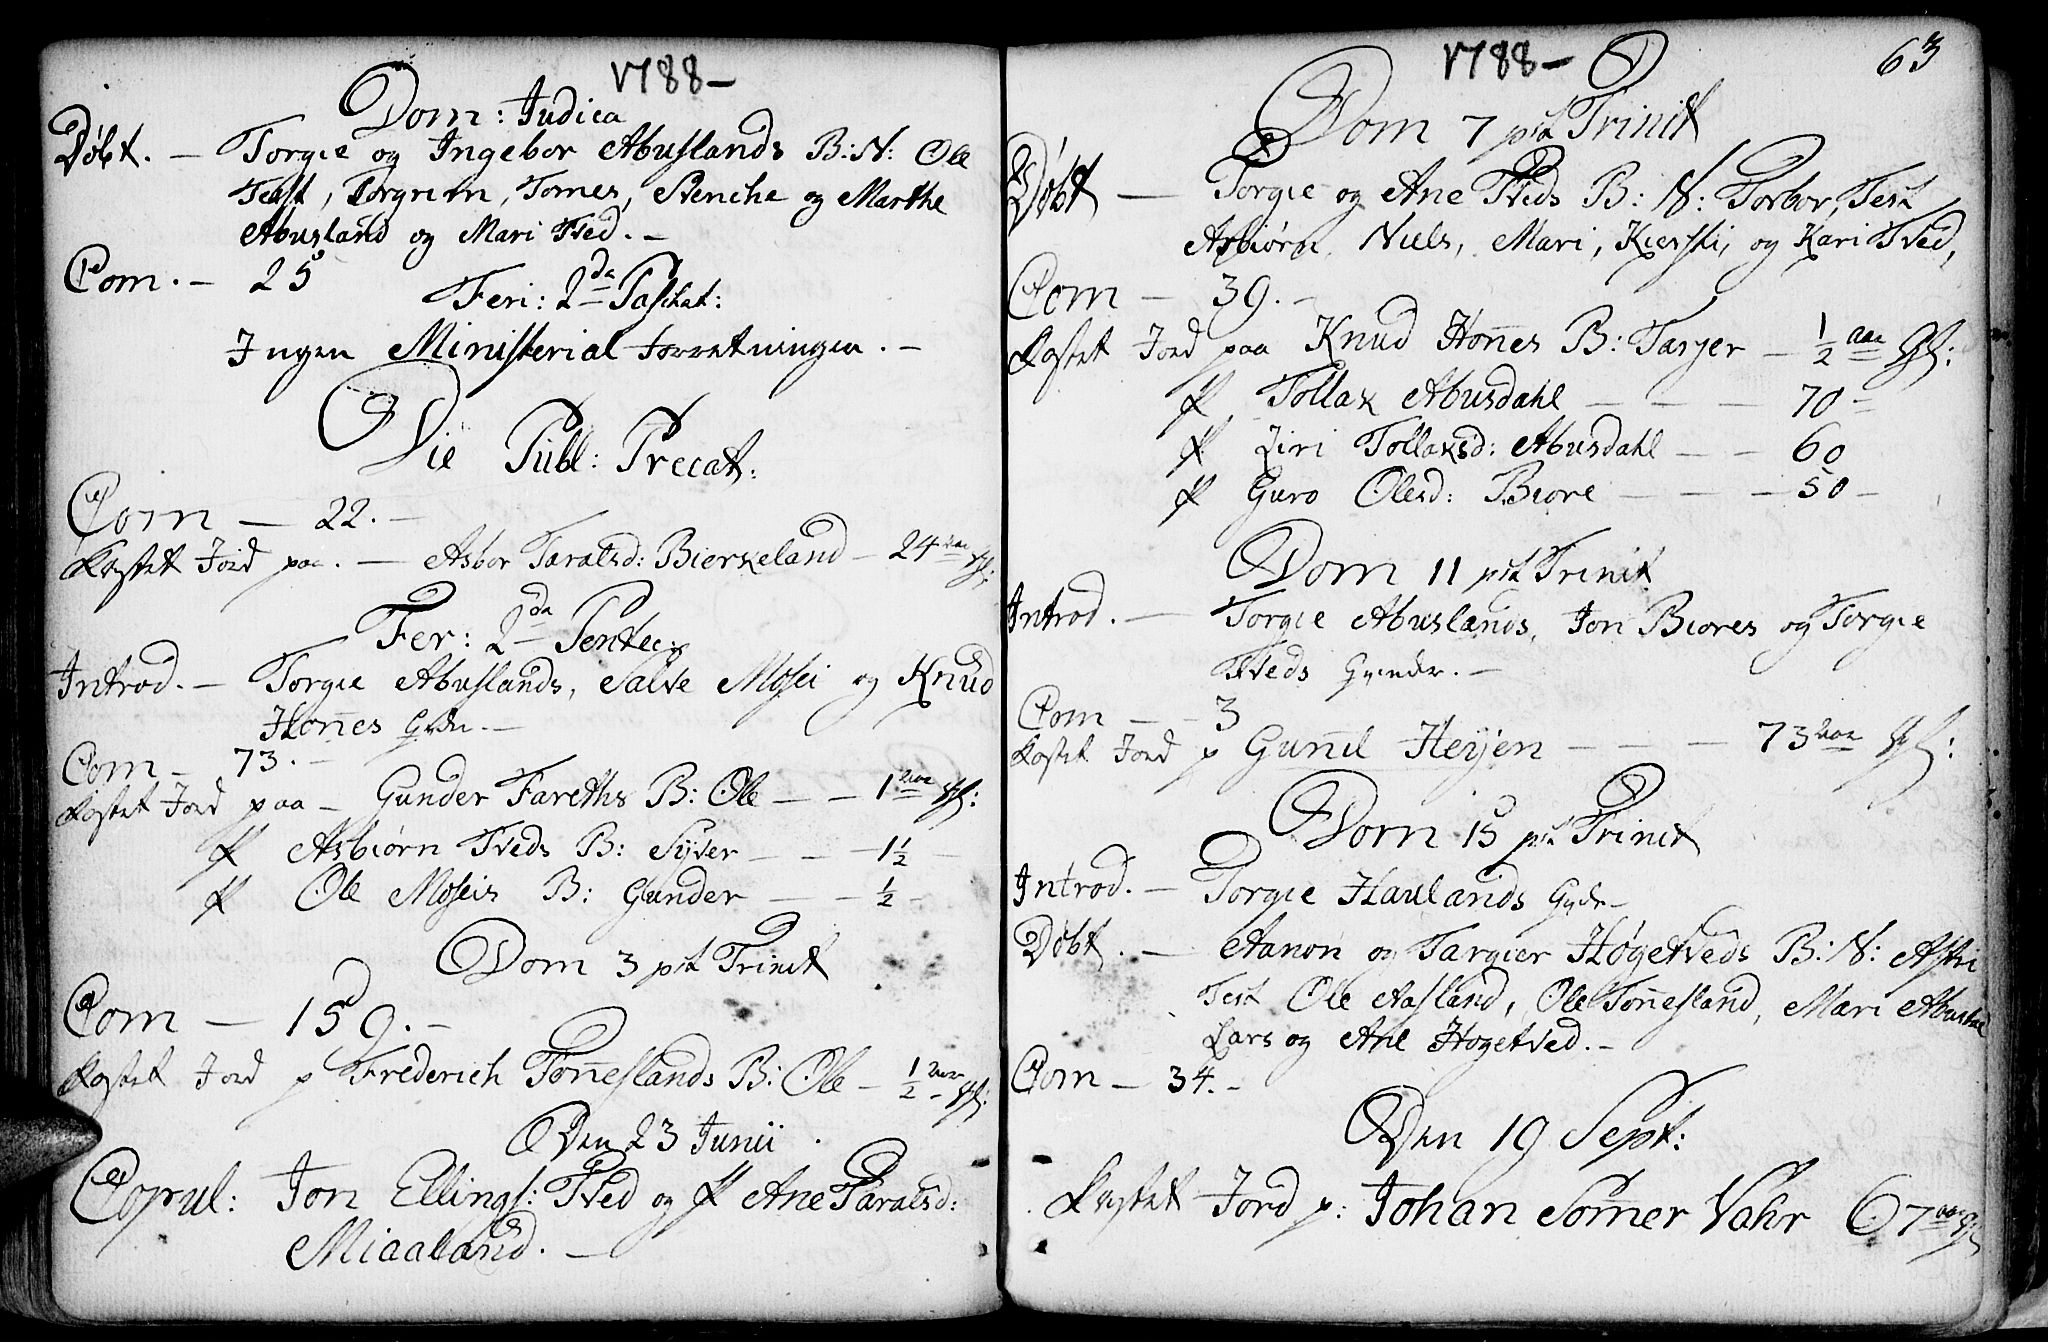 1788 –
Dom: Judica
Døbt. – Torgie og Ingebor Abuslands B: N: Ole
Test, Torgrim, Tomes, Stenche og Marthe
Abusland og Mari Tved. –
Com. – 25
Feri: 2da Paschat:
Ingen Ministerial forretningen. –
Die Publ: Precat:
Com – 22. –
Kastet Jord paa. – Asbor Taralsd: Bierkeland – 24 aar gl:
Fer: 2da Pentec:
Introd. – Torgie Abuslands, Salve Mosei og Knud
Hoñes Qvdr. –
Com – 73. –
Kastet Jord paa – Gunder Fareths B: Ole – – 1 aar gl:
Asbiørn Tveds B: Syver – – – 1½ –
Ole Moseis B: Gunder – – ½ –
Dom 3 pst Trinit
Com – 159. –
Kastet Jord p Frederich Toñeslands B: Ole – ½ aar gl:
Den 23 Junii
Copul: Jon Ellings: Tved og Ane Taralsd:
Miaaland. –
1788 –
63
Dom 7 pst Trinit
Døbt – Torgie og Ane Tveds B: N: Torbor, Test
Asbiørn, Niels, Mari, Kiersti, og Kari Tved,
Com – 39. –
Kastet Jord paa Knud Hoñes B: Tarjer – ½ aar gl:
Tollak Abusdahl – – – 70 –
Siri Tollaksd: Abusdahl – – 60
Guro Olesd: Biore – – – 50 –
Dom 11 pst Trinit
Introd. – Torgie Abuslands, Jon Biores og Torgie
Tveds Qvindr. –
Com – – 3
Kastet Jord p Guñil Heijen – – – 73 aar gl:
Dom 15 pst Trinit
Introd. – Torgie Haulands Qvdr –
Døbt. – Aanon og Targier Høgetveds B: N: Astri
Test Ole Aasland, Ole Toñesland, Mari
Lars og Ane Hogetved. –
Com – 34. –
Den 19 Sept:
Kastet Jord p: Johan Somer Vahr 67 aar gl: